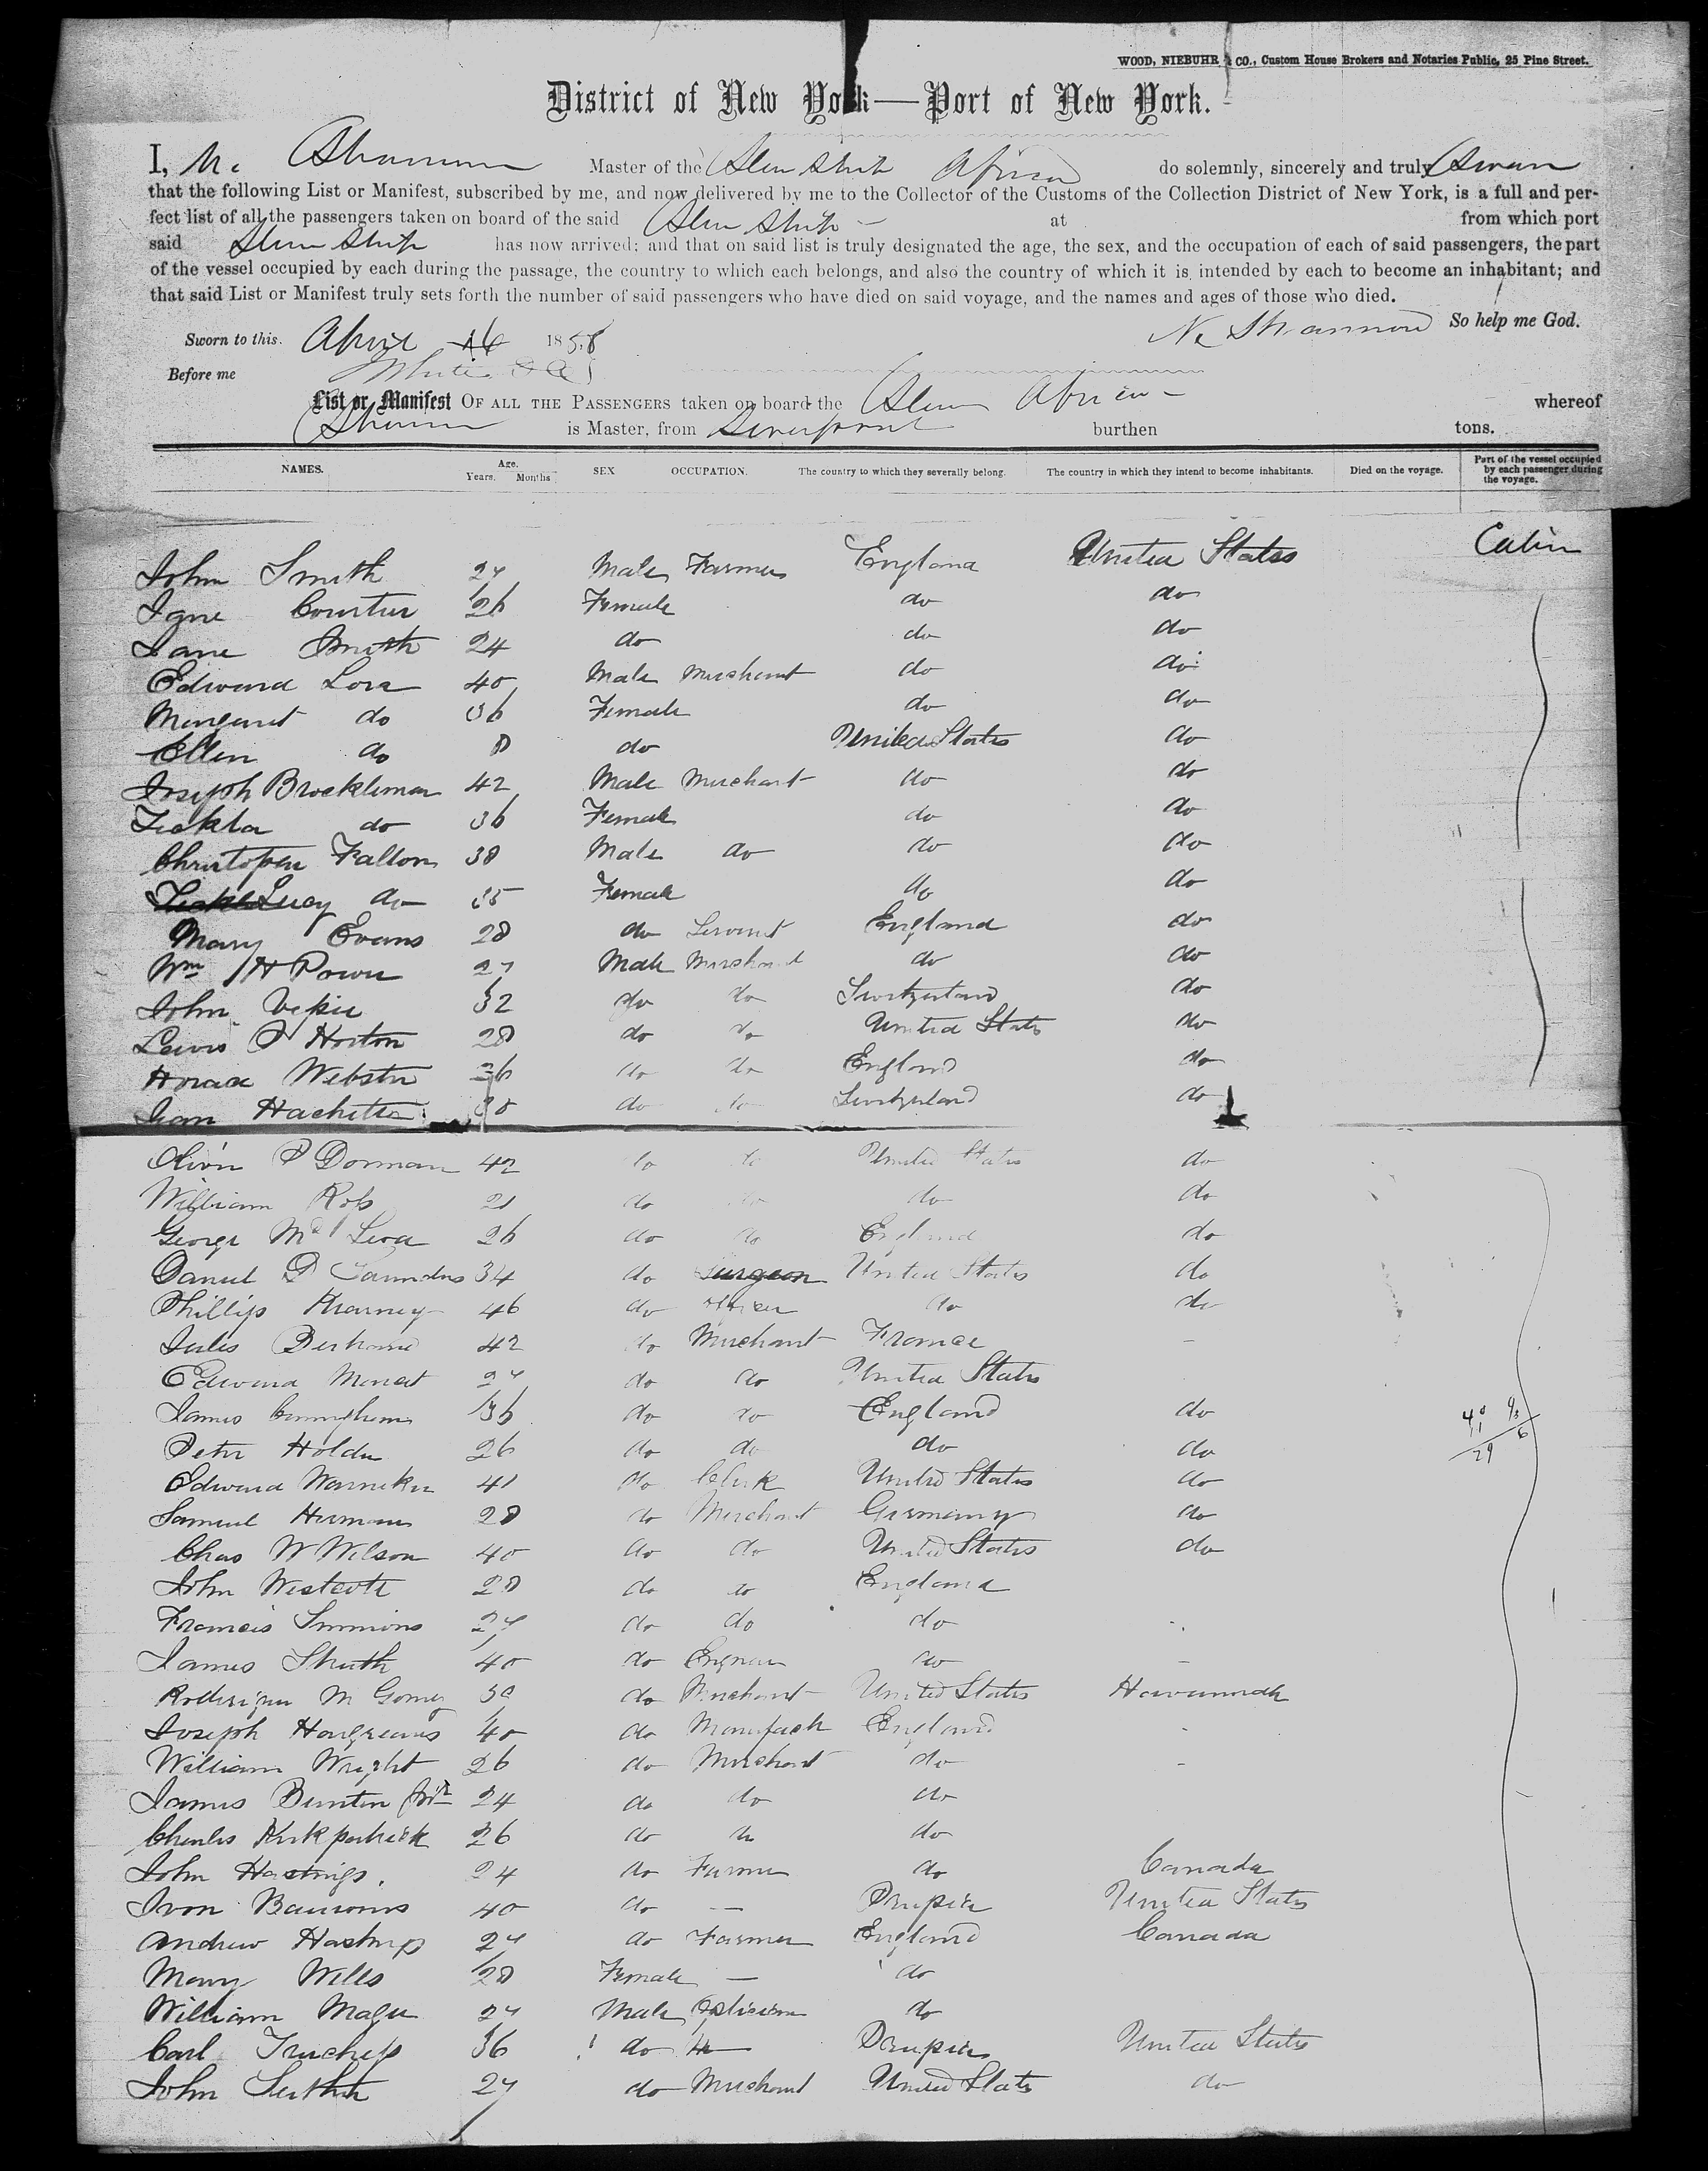 WOOD, NIEBUHR & CO., Custom House Brokers and Notaries Public, 25 Pine Street.
District of New York—Port of New York.
I, N. Shannon Master of the Steam Ship Africa do solemnly, sincerely and truly Swear
that the following List or Manifest, subscribed by me, and now delivered by me to the Collector of the Customs of the Collection District of New York, is a full and per-
fect list of all the passengers taken on board of the said Steam Ship at from which port
said Steam Ship has now arrived; and that on said list is truly designated the age, the sex, and the occupation of each of said passengers, the part
of the vessel occupied by each during the passage, the country to which each belongs, and also the country of which it is intended by each to become an inhabitant; and
that said List or Manifest truly sets forth the number of said passengers who have died on said voyage, and the names and ages of those who died.
Sworn to this. April 16 1858 N. Shannon So help me God.
Before me
List or Manifest OF ALL THE PASSENGERS taken on board the Steam Africa whereof
Shannon is Master, from Liverpool burthen tons.
NAMES. Age. Years. Months SEX OCCUPATION. The country to which they severally belong. The country in which they intend to become inhabitants. Died on the voyage. Part of the vessel occupied by each passenger during the voyage.
John Smith 27 Male Farmer England United States Cabin
Jane 26 Female do do
Jane Smith 24 do do do
Edward 40 Male Merchant do do
Margaret do 36 Female do do
Ellen do 8 do United States do
Joseph Brockleman 42 Male Merchant do do
do 36 Female do do
Christopher Fallon 38 Male do do do
Lucy do 35 Female do do
Mary Evans 28 do Servant England do
Wm H Power 27 Male Merchant do do
John 32 do do Switzerland do
Lewis P Horton 28 do do United States do
Horace Webster 36 do do England do
Jean 30 do do Switzerland do
Oliver P Dorman 42 do do United States do
William Ross 21 do do do do
George 26 do do England do
Daniel D Saunders 34 do Surgeon United States do
Phillip Kearney 46 do Officer do do
Jules 42 do Merchant France -
Edward 27 do do United States
James Cunningham 36 do do England do
Peter Holden 26 do do do do
Edward 41 do Clerk United States do
Samuel Herman 28 do Merchant Germany do
Chas W Wilson 40 do do United States do
John Westcott 28 do do England
Francis Simmons 27 do do do
James 40 do Engineer do -
M Gomez 30 do Merchant United States Havannah
Joseph Hargreaves 40 do England -
William Wright 26 do Merchant do -
James Bunten Jnr 24 do do do
Charles Kirkpatrick 26 do do do
John Hastings. 24 do Farmer do Canada
40 do — Prussia United States
Andrew Hastings 27 do Farmer England Canada
Mary Wells 28 Female — do
William 27 Male Optician do
Carl 36 do Prussia United States
John 27 do Merchant United States do